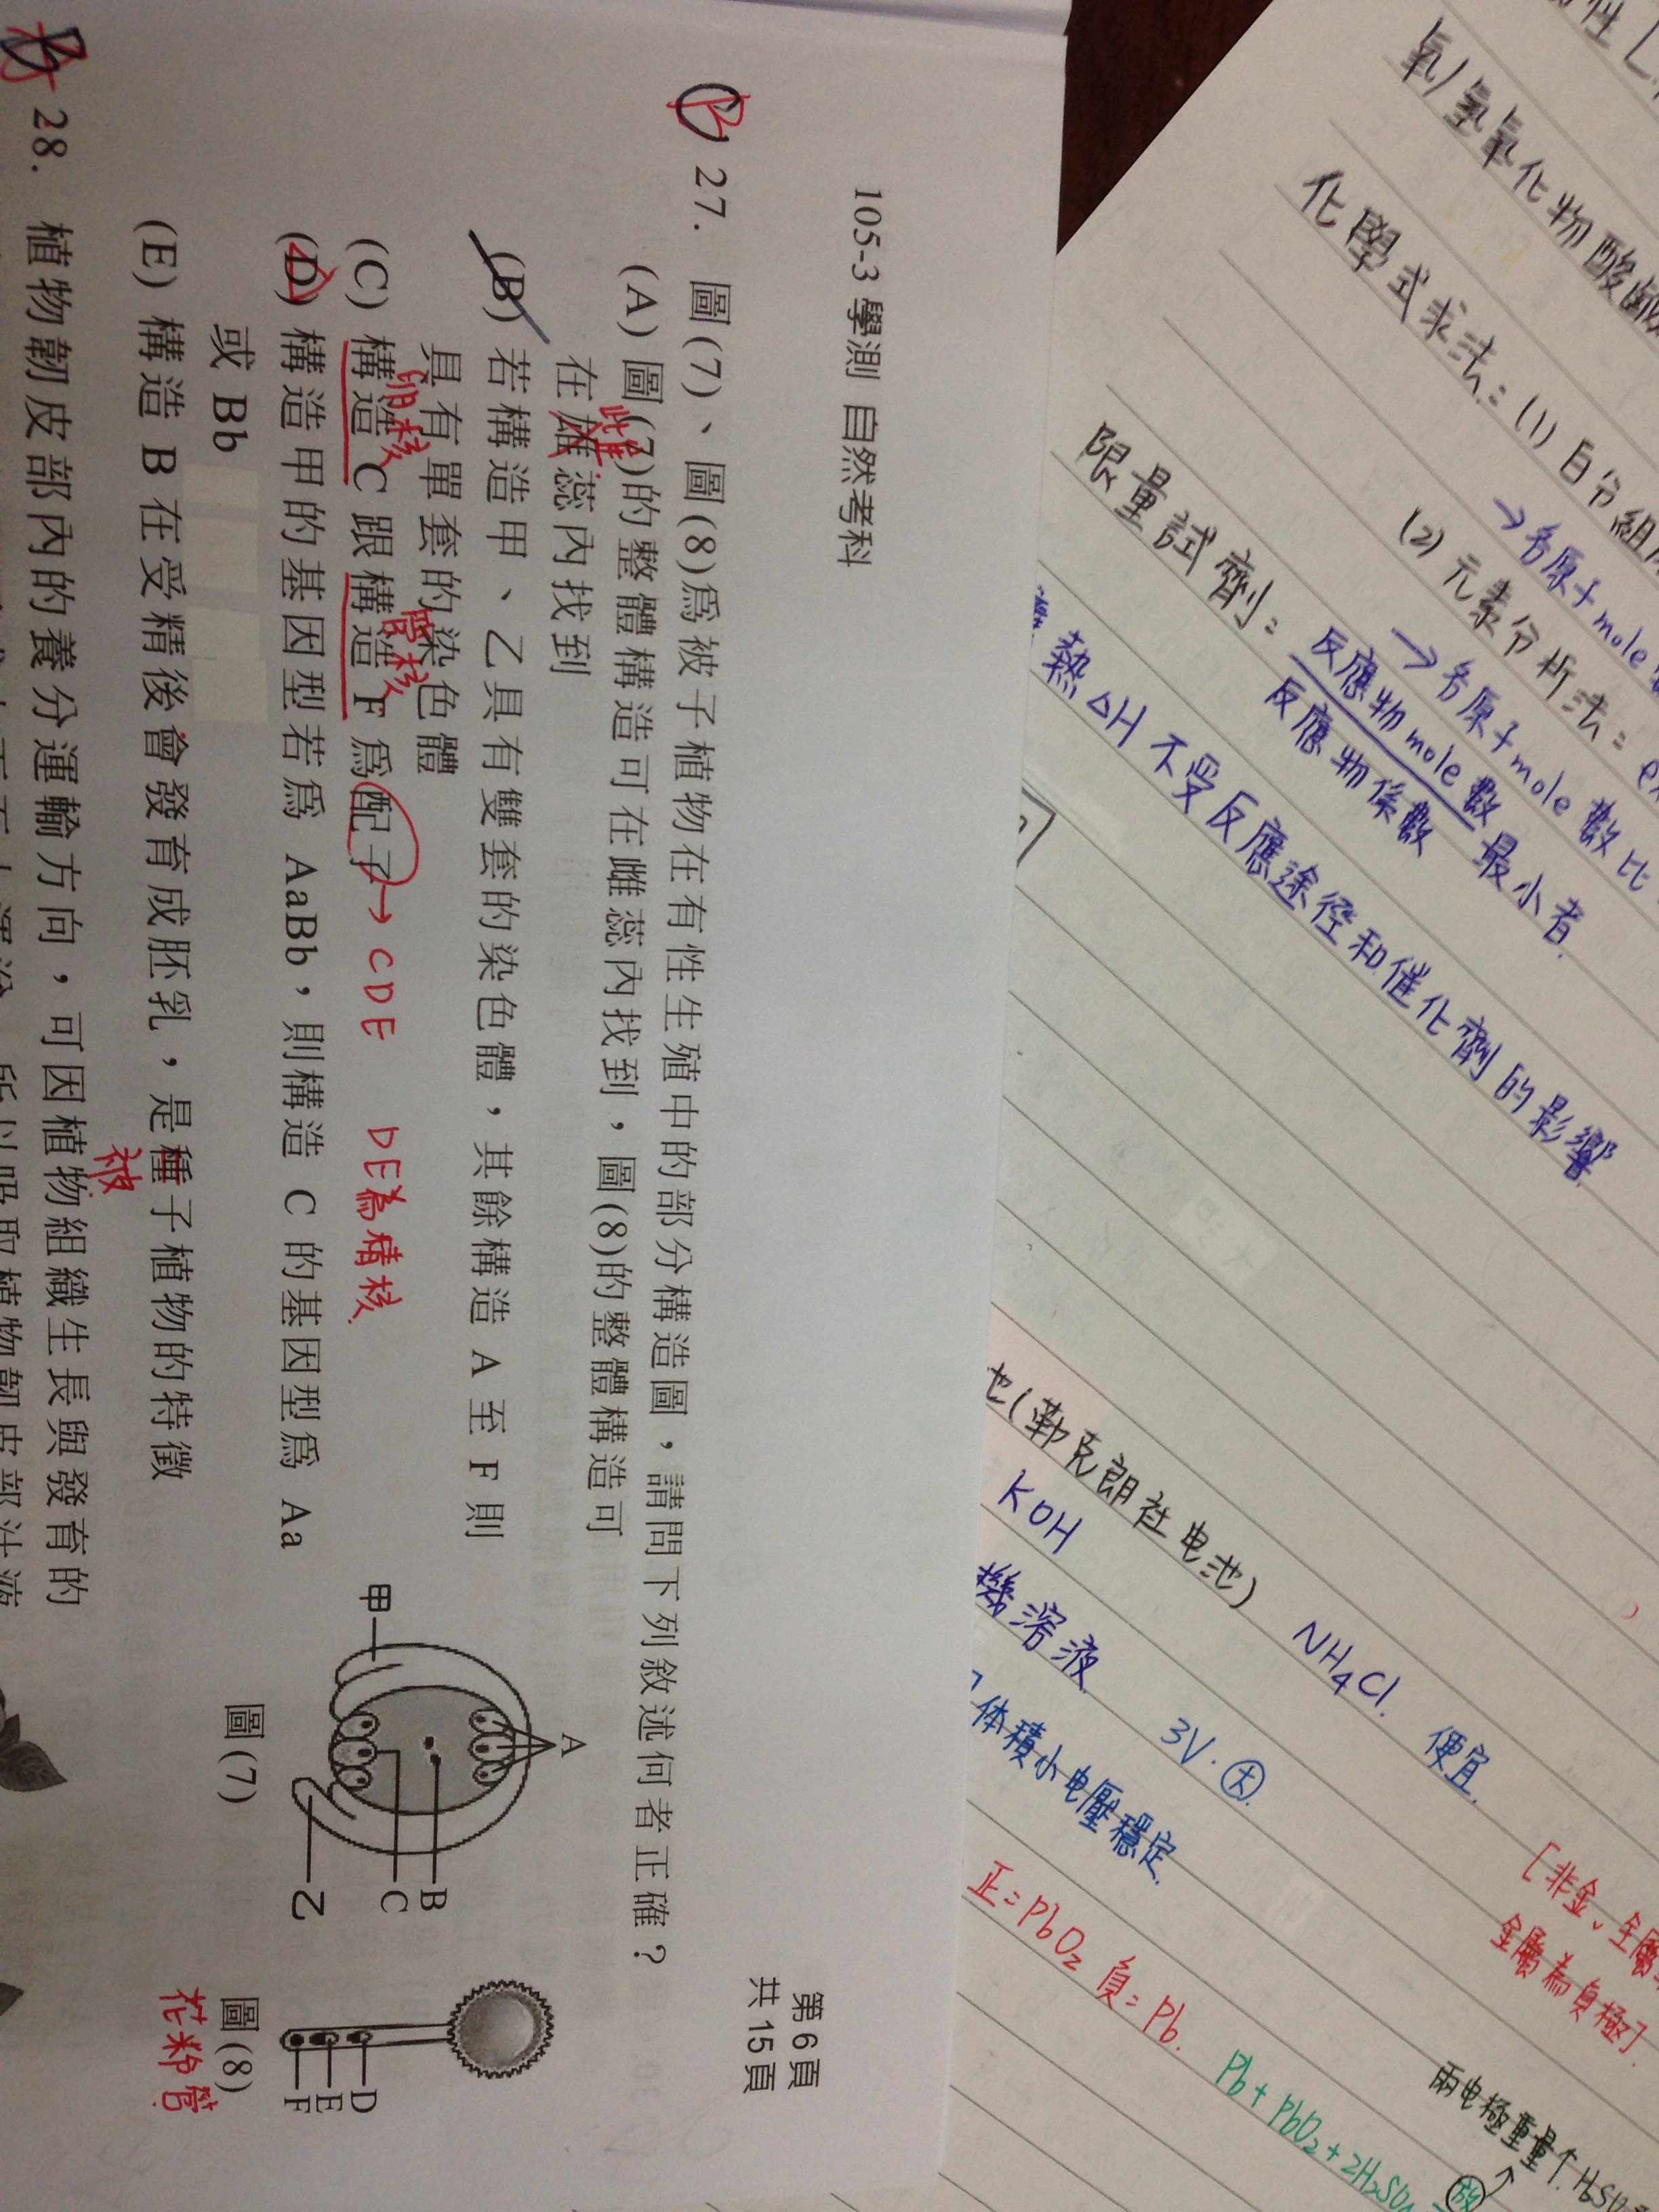 105-3 學測 自然考科
第 6 頁
共 15 頁
B 27. 圖(7)、圖(8)為被子植物在有性生殖中的部分構造圖，請問下列敘述何者正確？
(A) 圖(7)的整體構造可在雌蕊內找到，圖(8)的整體構造可
雌
在雄蕊內找到
(B) 若構造甲、乙具有雙套的染色體，其餘構造 A 至 F 則
具有單套的染色體
卵核 管核
(C) 構造 C 跟構造 F 為配子→ CDE DE為精核
(D) 構造甲的基因型若為 AaBb，則構造 C 的基因型為 Aa
或 Bb
(E) 構造 B 在受精後會發育成胚乳，是種子植物的特徵
被
甲
A
B
C
乙
圖(7)
D
E
F
圖(8)
花粉管
28. 植物韌皮部內的養分運輸方向，可因植物組織生長與發育的
所以吸取植物韌皮部汁液
性
氧/氫氧化物酸鹼
化學式求法：(1) 百分組
→求原子mole
(2) 元素分析法：
→求原子mole數比
限量試劑：反應物mole數
反應物係數
最小者.
熱△H 不受反應途徑和催化劑的影響
池(勒克朗社电池) NH4Cl. 便宜.
KOH
機溶液 3V. 大.
体積小電壓穩定.
[非金、金屬
金屬為負極].
正=PbO2 負=Pb.
Pb+PbO2+2H2SO4 放
兩电極重量↑ H2SO4